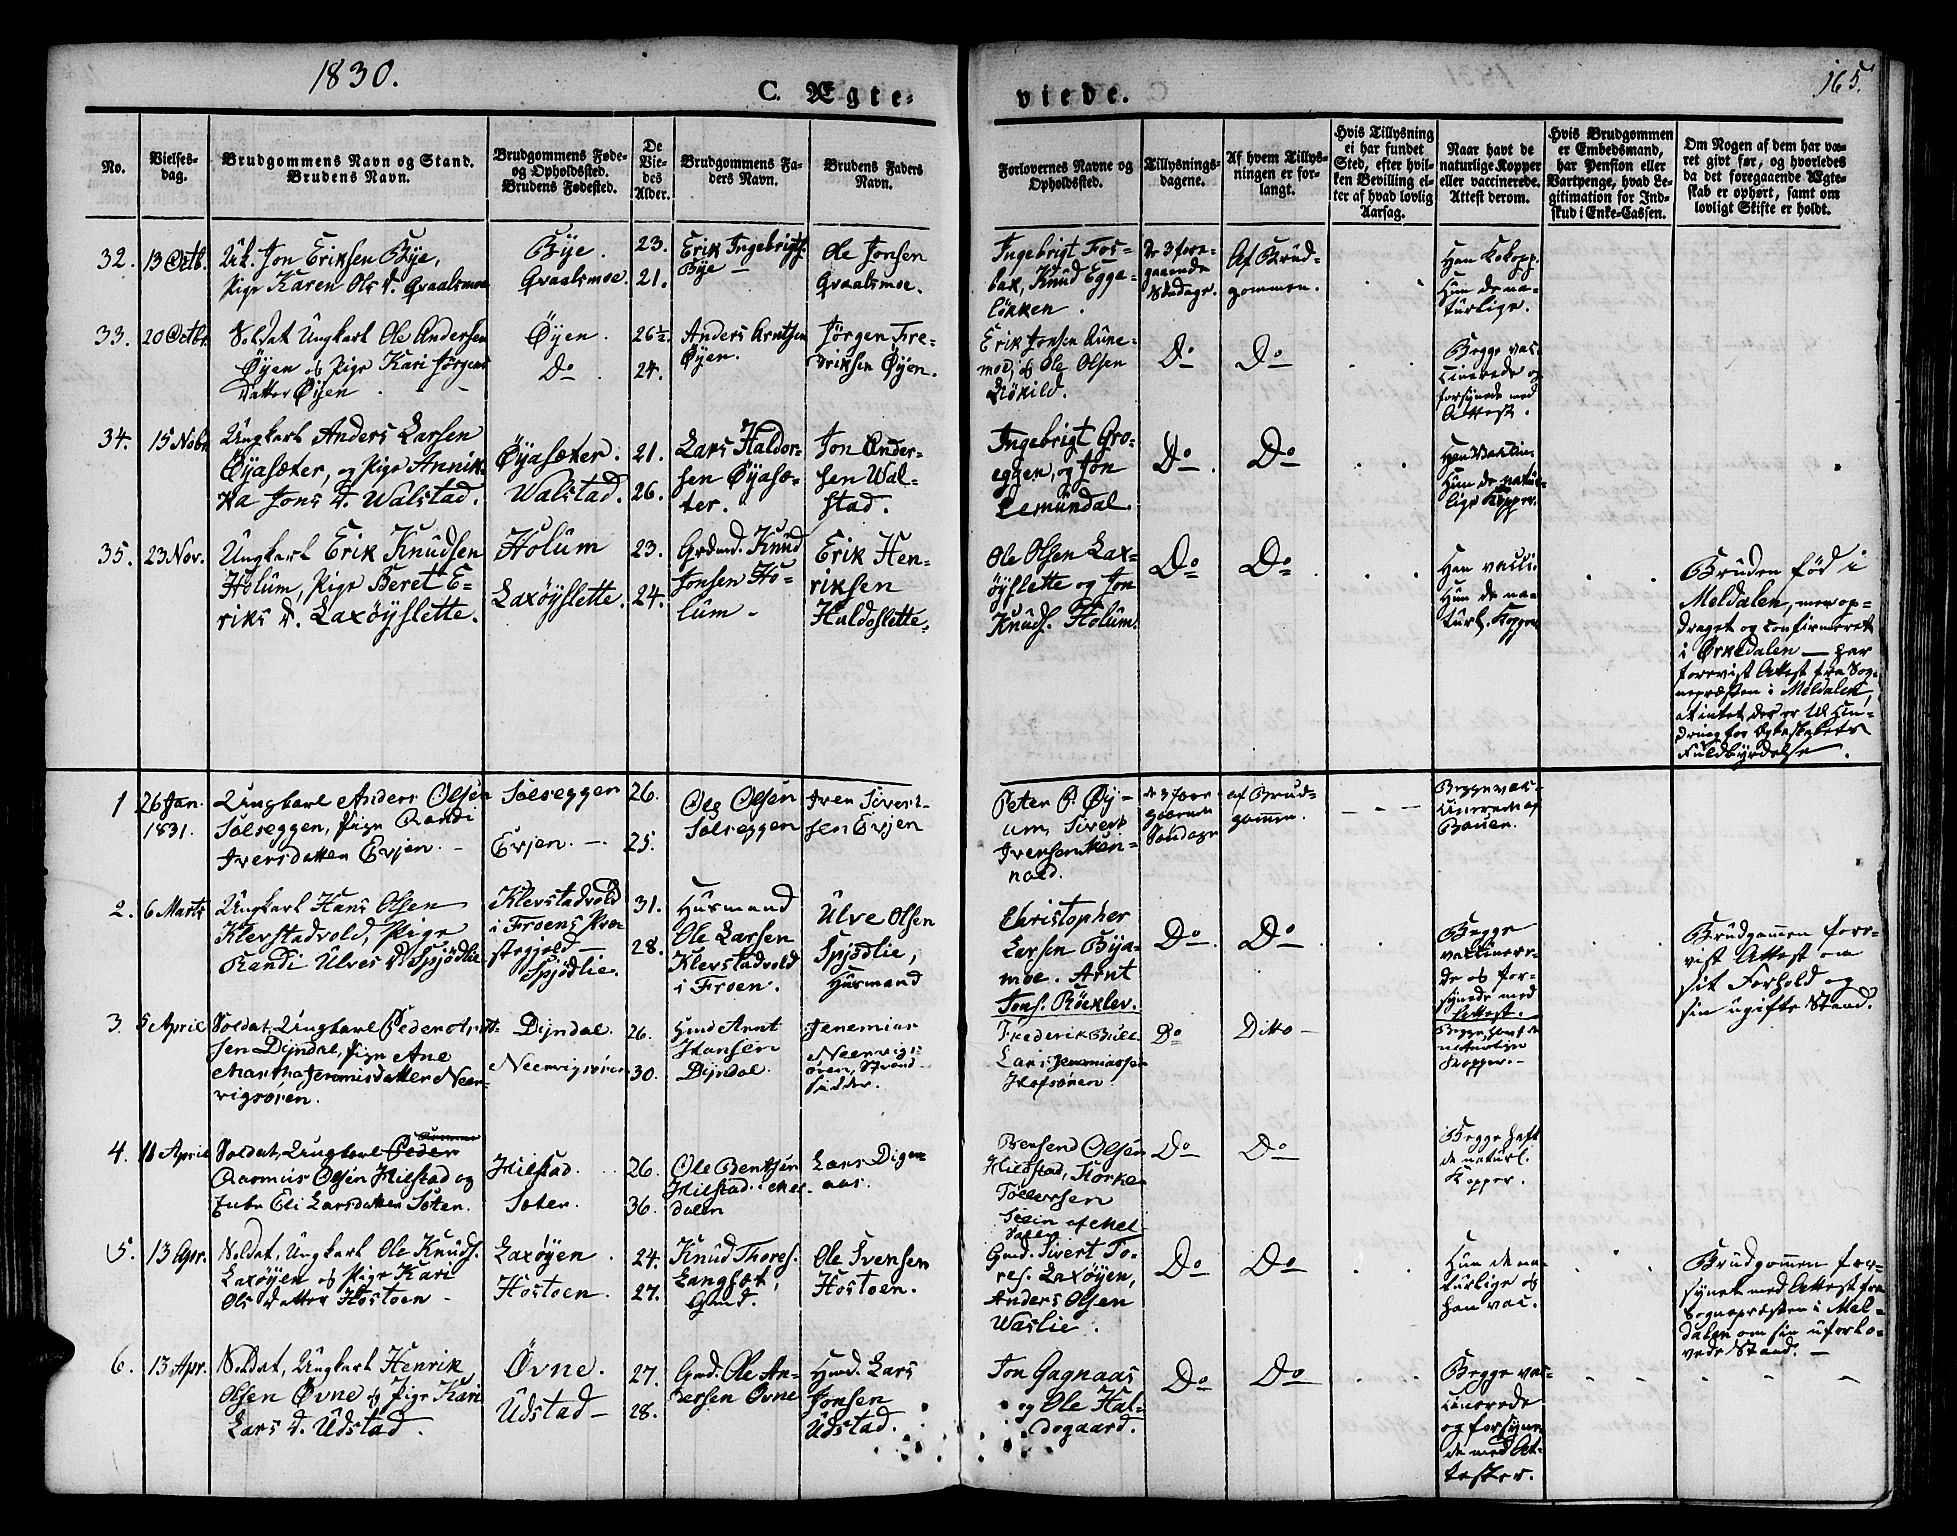 1830.
165.
C. Ægte-
viede.
No.
Vielses-
dag.
Brudgommens Navn og Stand.
Brudens Navn.
Brudgommens Føde-
og Opholdssted.
Brudens Fødested.
De
Vie-
des
Alder.
Brudgommens Fa-
ders Navn.
Brudens Faders
Navn.
Forlovernes Navne og
Opholdssted.
Tillysnings-
dagene.
Af hvem Tillys-
ningen er for-
langt.
Hvis Tillysning
ei har fundet
Sted, efter hvil-
ken Bevilling el-
ler af hvad lovlig
Aarsag.
Naar havt de
naturlige Kopper
eller vaccinerede.
Attest derom.
Hvis Brudgommen
er Embedsmand,
har Pension eller
Vartpenge, hvad Le-
gitimation for Ind-
skud i Enke-Cassen.
Om Nogen af dem har væ-
ret gift før, og hvorledes
da det foregaaende Ægte-
skab er ophørt, samt om
lovligt Skifte er holdt.
32.
13 Octb.
Uk. Jon Eriksen Bye,
Pige Karen Ols D. Qvaalsmoe
Bye.
Qvaalsmoe.
23.
21.
Erik Ingebrigts.
Bye —
Ole Jonsen
Qvaalsmoe.
Ingebrigt Fos-
bak, Knud Egge-
løkken.
De 3 fore-
gaaende
Søndage.
Af Brud-
gommen.
Han Kokopp.
Hun de na-
turlige.
33.
20 Octbr
Soldat Ungkarl Ole Andersen
Øyen og Pige Kari Jørgens
Datter Øyen.
Øyen.
Do
26½.
24.
Anders Arntsen
Øyen.
Jørgen Fre-
driksen Øyen.
Erik Jonsen Rune-
moe, og Ole Olsen
Do
Do
Begge vac-
cinerede og
forsynede med
Attest.
34.
15 Nobr
Ungkarl Anders Larsen
Øyasæter, og Pige Annik-
ka Jons D. Walstad.
Øyasæter.
Walstad.
21.
26.
Lars Haldor-
sen Øyasæ-
ter.
Jon Ander-
sen Wal-
stad.
Ingebrigt Gro-
eggen, og Jon
Lemundal.
Do.
Do
Han Vaccin.
Hun de natur-
lige Kopper.
35.
23 Nov.
Ungkarl Erik Knudsen
Holum, Pige Beret E-
riks D. Laxøyslette.
Holum
Laxøyslette.
23.
24.
Grdmd. Knud
Jonsen Ho-
lum —
Erik Hen-
riksen
Huldoslette.
Ole Olsen Lax-
øyslette og Jon
Knuds. Holum.
Do
Do
Han vacci.
Hun de na-
turl. Kopper
Bruden fød i
Meldalen, men op-
draget og confirmeret
i Ørkedalen — har
forevist Attest fra Sog-
nepræsten i Meldalen,
at intet der er til Hin-
dring for Ægteskabets
Fuldbyrdelse.
1
26 Jan.
1831.
Ungkarl Anders Olsen
Solseggen, Pige Randi
Iversdatter Evjen. —
Solseggen
Evjen. —
26.
25.
Ole Olsen
Solseggen
Iver Sivert-
sen Evjen
Peter P. Øy-
um, Sivert
Iversen
de 3 fore
gaaende
Søndage
af Brud-
gommen.
Begge vac-
cinerede af
2.
6 Marts
Ungkarl Hans Olsen
Klevstadvold, Pige
Randi Ulves D. Spjødlie
Klevstadvold
i Froens Præ
stegjeld
Spjødlie.
31.
28.
Husmand
Ole Larsen
Klevstadvold
i Froen.
Ulve Olsen
Spjødlie,
Husmand
Christopher
Larsen Bya-
moe. Arnt
Jons. Röxlev.
Do.
Do
Begge
vaccinere-
de og for-
synede med
Attest.
Brudgommen fore-
vist Attest om
sit Forhold og
sin ugifte Stand.
3.
5 April
Soldat, Ungkarl Peder Arnt-
sen Dijndal, Pige Ane
Martha Jeremisdatter Neer-
vigsøren.
Dijndal.
Neervigsøren
26.
30.
Hmd Arnt
Hansen
Dijndal.
Jeremias
Neervigs-
øren, Strand-
sidder.
Frederik
Lars Jeremiassen
Hofsøren
Do
Ditto —
Begge havt de
naturlige
Kopper. —
4.
11 April
Soldat, Ungkarl Peder
Rasmus Olsen Hilstad og
Enke Eli Larsdatter Soter.
Hilstad.
Soter.
26.
36.
Ole Bentsen
Hilstad i Mel-
dalen
Lars Digen-
aas.
Olsen
Hildstad, Størker
Tollersen
af Mel-
dalen
Do
Do
Begge haft
de naturl.
Kopper.
5.
13 Apr.
Soldat, Ungkarl Ole Knuds.
Laxøyen og Pige Kari
Ols Datter Hostoen —
Laxøyen.
Hostoen.
24.
27.
Knud Thores.
Langsæt,
Gmd.
Ole Svensen
Hostoen.
Gmd. Sivert To-
res. Laxøyen,
Anders Olsen
Waslie.
Do
Do
Hun de na-
turlige og
han vac.
Brudgommen for-
synet med Attest fra
Sognepræsten i Mel-
dalen om sin uforlo-
vede Stand. —
6.
13 Apr.
Soldat, Ungkarl Henrik
Olsen Øvne og Pige Kari
Lars D. Udstad.
Øvne.
Udstad —
27.
28.
Gmd. Ole An-
dersen Øvne
Hmd. Lars
Jonsen
Udstad.
Jon Gagnaas
og Ole Hal-
dogaard.
Do
Do
Begge vac-
cinerede
og forsyne-
de med At-
tester.